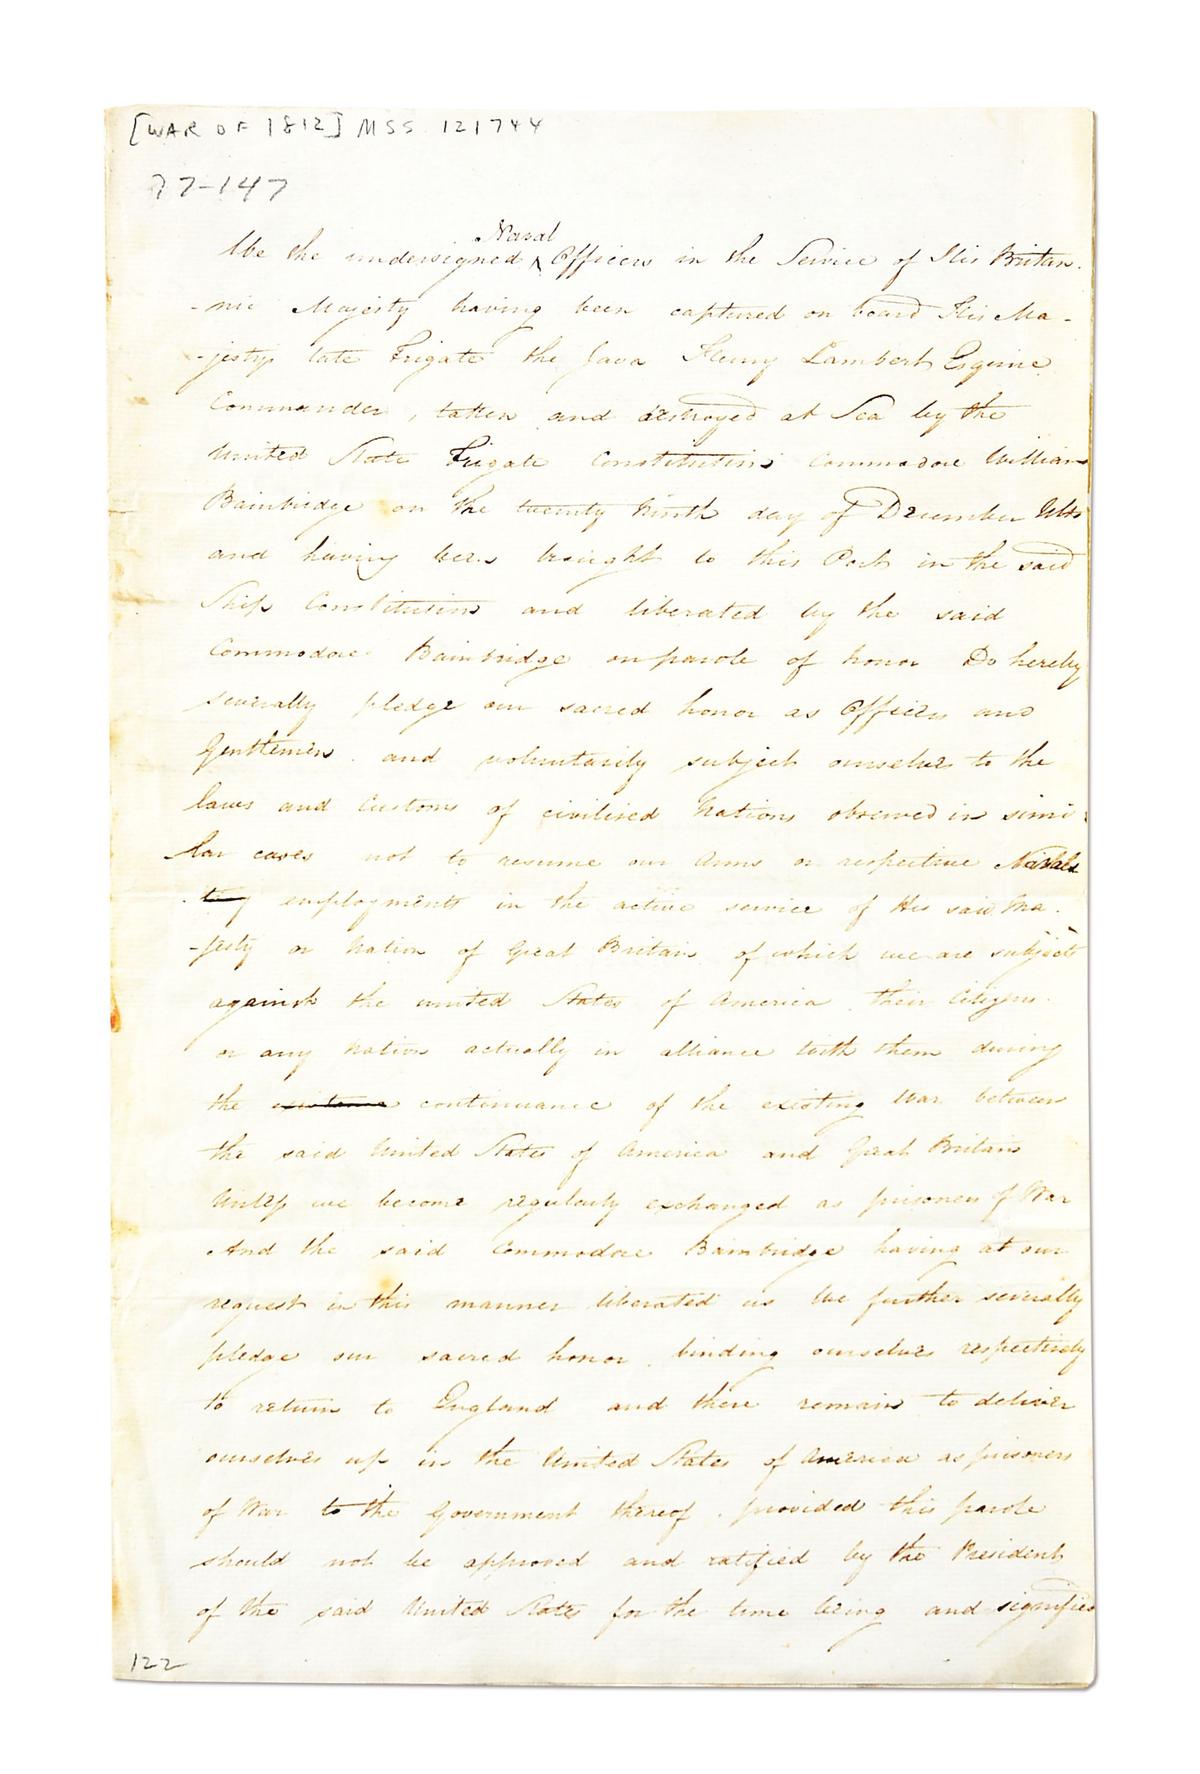 [WAR OF 1812] MSS 121744
77-147
Naval
We the undersigned ^ Officers in the Service of His Britan-
-nic Majesty having been captured on board His Ma-
-jestys late Frigate the Java Henry Lambert Esquire
Commander, taken and destroyed at Sea by the
United State Frigate Constitution Commodore William
Bainbridge on the twenty Ninth day of December Ulto
and having been brought to this Port in the said
Ship Constitution and liberated by the said
Commodore Bainbridge on parole of honor Do hereby
severally pledge our sacred honor as Officers and
Gentlemen and voluntarily subject ourselves to the
laws and Customs of civilized Nations observed in simi-
lar cases not to resume our Arms or respective Naval
employments in the active service of His said Ma-
-jesty or Nation of Great Britain of which we are subjects
against the united States of America their Citizens
or any Nation actually in alliance with them during
the existence continuance of the existing War between
the said United States of America and Great Britain
Unless we become regularly exchanged as prisoners of War
And the said Commodore Bainbridge having at our
request in this manner liberated us We further severally
pledge our sacred honor binding ourselves respectively
to return to England and there remain to deliver
ourselves up in the United States of America as prisoners
of War to the Government thereof. provided this parole
should not be approved and ratified by the President
of the said United States for the time being and signified
122